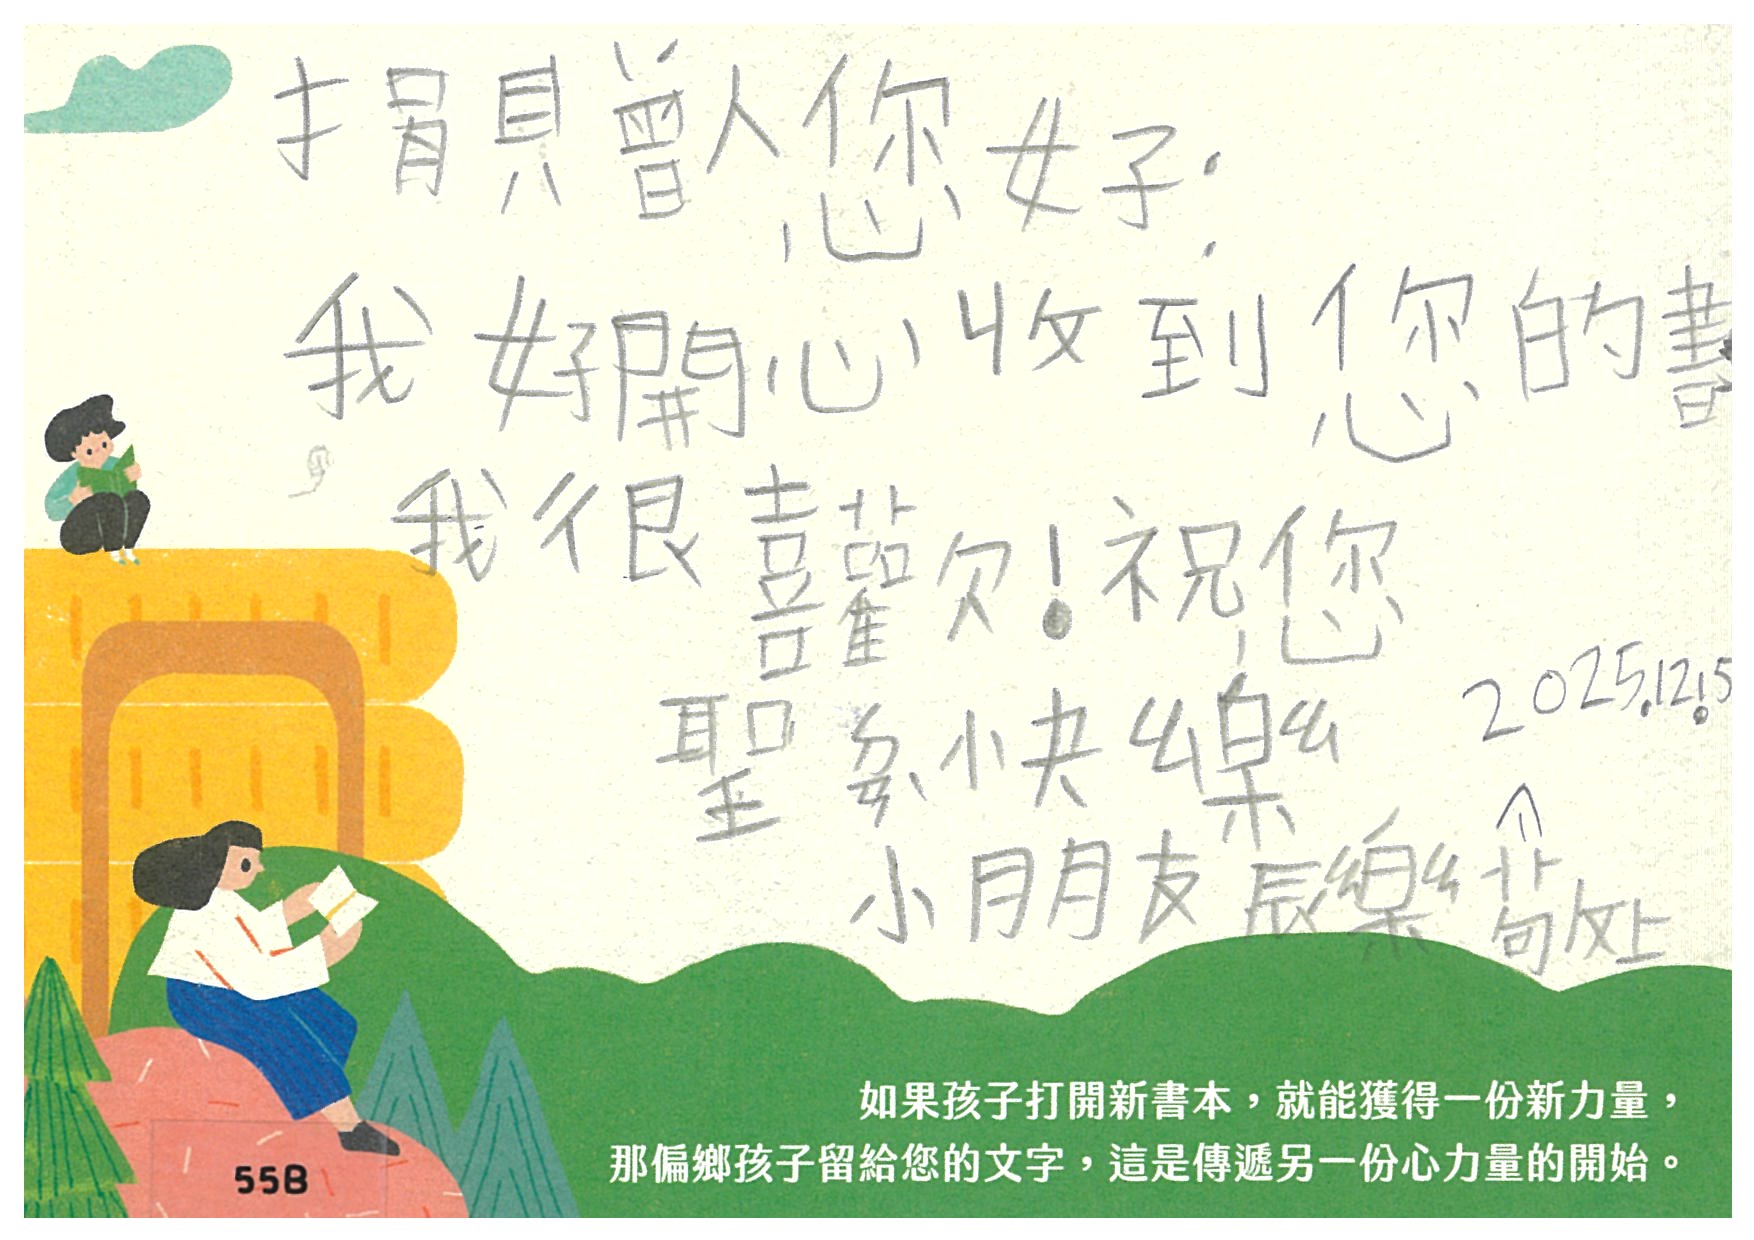 捐贈人您好：
我好開心收到您的書
我很喜歡！祝您
聖誕快樂
2025.12.5
小朋友辰樂敬上
如果孩子打開新書本，就能獲得一份新力量，
那偏鄉孩子留給您的文字，這是傳遞另一份心力量的開始。
55B